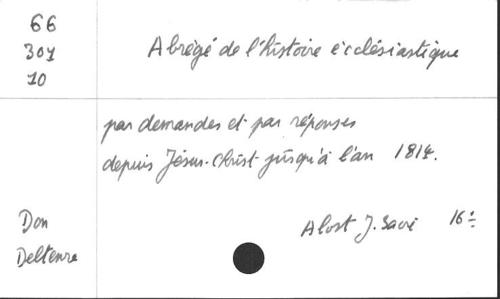 66
307
10
Abrégé de l'histoire écclésiastique
par demandes et par réponses
depuis Jésus-Christ jusqu'à l'an 1814.
Don
Deltenre
Alost J. Sacré 16°